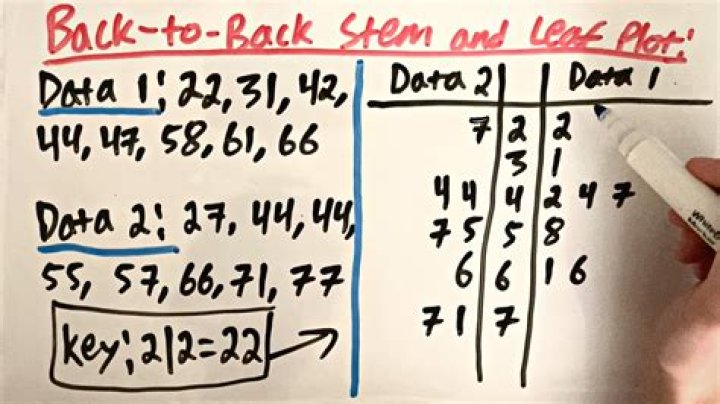 Back-to-Back Stem and Leaf Plot:
Data 1: 22, 31, 42,
44, 47, 58, 61, 66
Data 2: 27, 44, 44,
55, 57, 66, 71, 77
key: 2|2=22
Data 2 | | Data 1
7 | 2 | 2
3 | 1
4 4 | 4 | 2 4 7
7 5 | 5 | 8
6 | 6 | 1 6
7 1 | 7 |